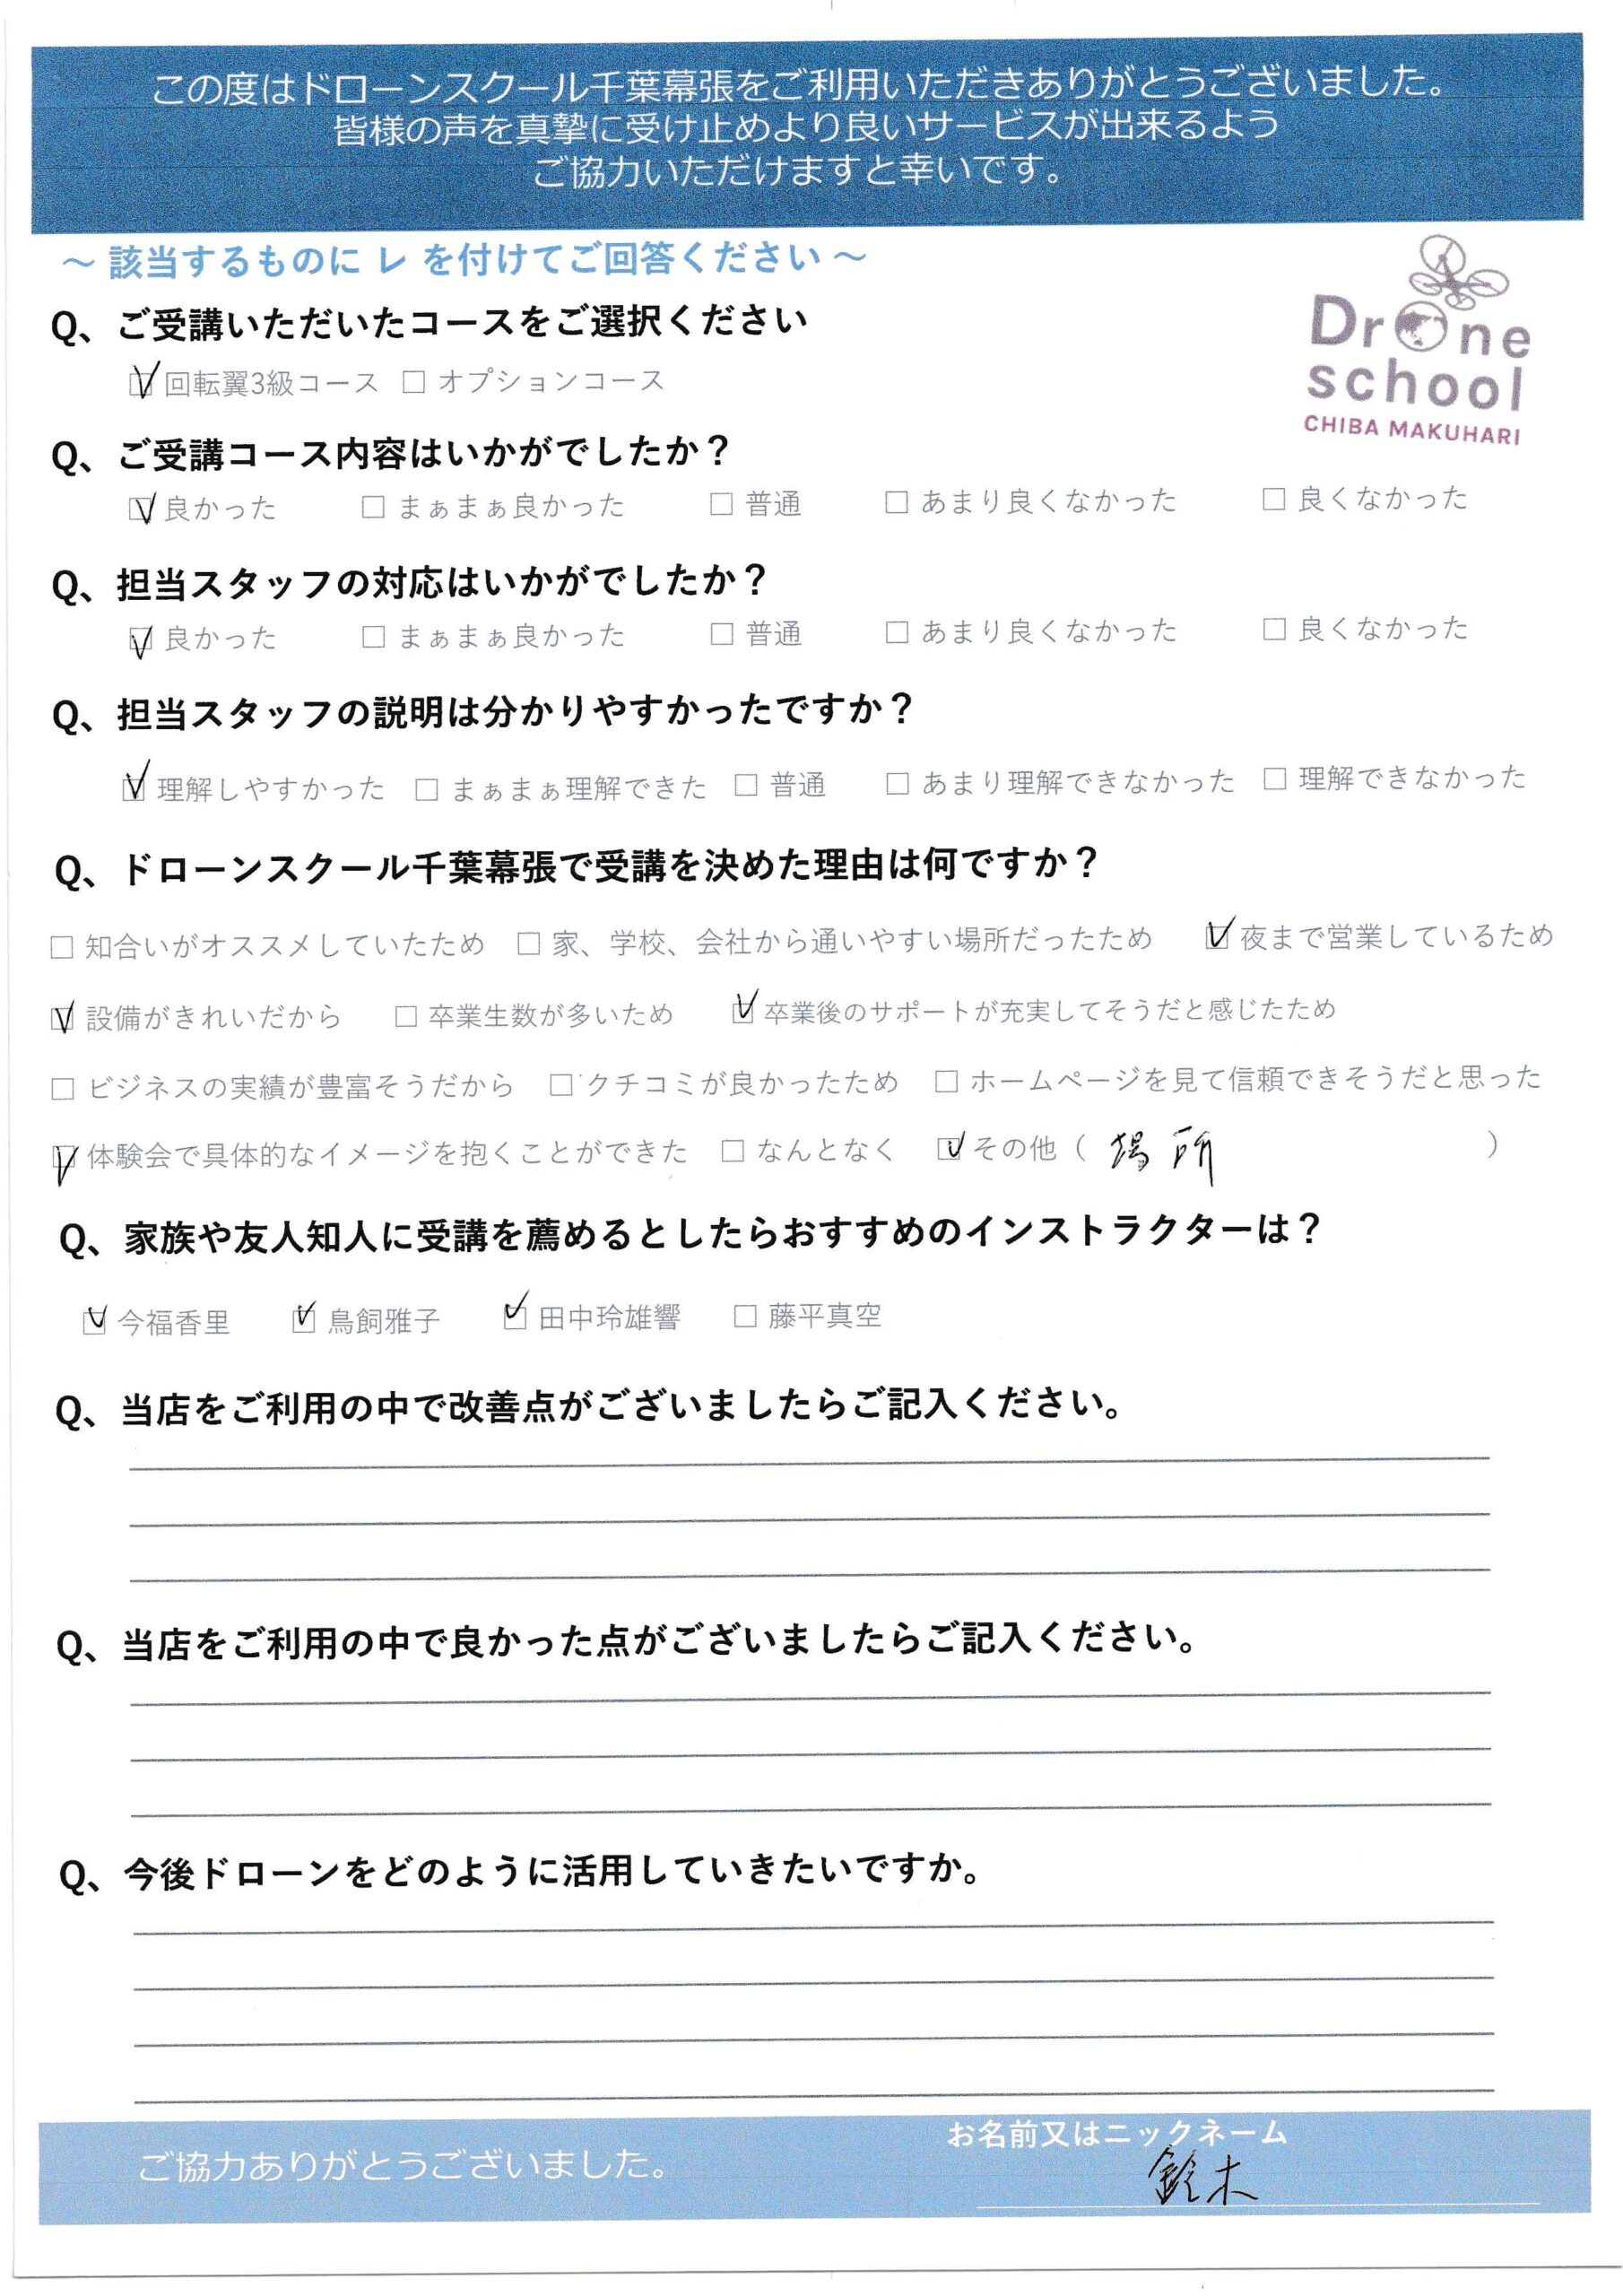 この度はドローンスクール千葉幕張をご利用いただきありがとうございました。
皆様の声を真摯に受け止めより良いサービスが出来るよう
ご協力いただけますと幸いです。
～ 該当するものに レ を付けてご回答ください ～
Drone
school
CHIBA MAKUHARI
Q、ご受講いただいたコースをご選択ください
☑ 回転翼3級コース □ オプションコース
Q、ご受講コース内容はいかがでしたか？
☑ 良かった □ まぁまぁ良かった □ 普通 □ あまり良くなかった □ 良くなかった
Q、担当スタッフの対応はいかがでしたか？
☑ 良かった □ まぁまぁ良かった □ 普通 □ あまり良くなかった □ 良くなかった
Q、担当スタッフの説明は分かりやすかったですか？
☑ 理解しやすかった □ まぁまぁ理解できた □ 普通 □ あまり理解できなかった □ 理解できなかった
Q、ドローンスクール千葉幕張で受講を決めた理由は何ですか？
□ 知合いがオススメしていたため □ 家、学校、会社から通いやすい場所だったため ☑ 夜まで営業しているため
☑ 設備がきれいだから □ 卒業生数が多いため ☑ 卒業後のサポートが充実してそうだと感じたため
□ ビジネスの実績が豊富そうだから □ クチコミが良かったため □ ホームページを見て信頼できそうだと思った
☑ 体験会で具体的なイメージを抱くことができた □ なんとなく ☑ その他（ 場所 ）
Q、家族や友人知人に受講を薦めるとしたらおすすめのインストラクターは？
☑ 今福香里 ☑ 鳥飼雅子 ☑ 田中玲雄響 □ 藤平真空
Q、当店をご利用の中で改善点がございましたらご記入ください。
Q、当店をご利用の中で良かった点がございましたらご記入ください。
Q、今後ドローンをどのように活用していきたいですか。
お名前又はニックネーム
ご協力ありがとうございました。
鈴木